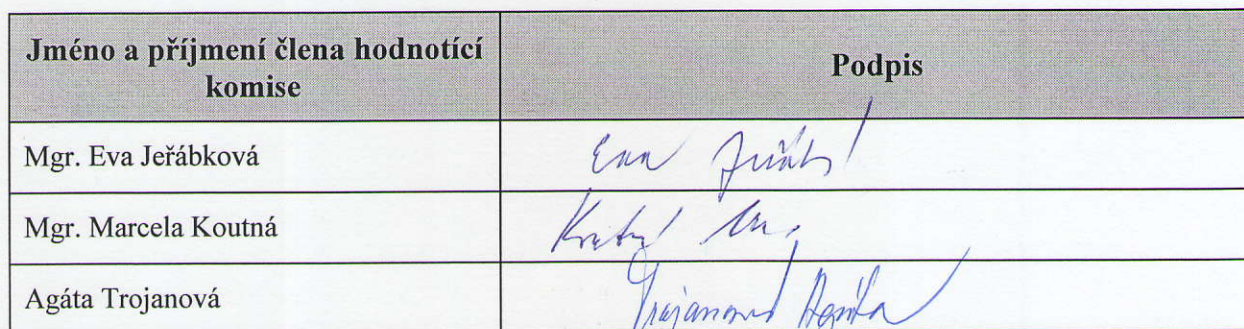 Jméno a příjmení člena hodnotící
komise
Podpis
Mgr. Eva Jeřábková
Eva
Mgr. Marcela Koutná
Agáta Trojanová
Trojanová Agáta